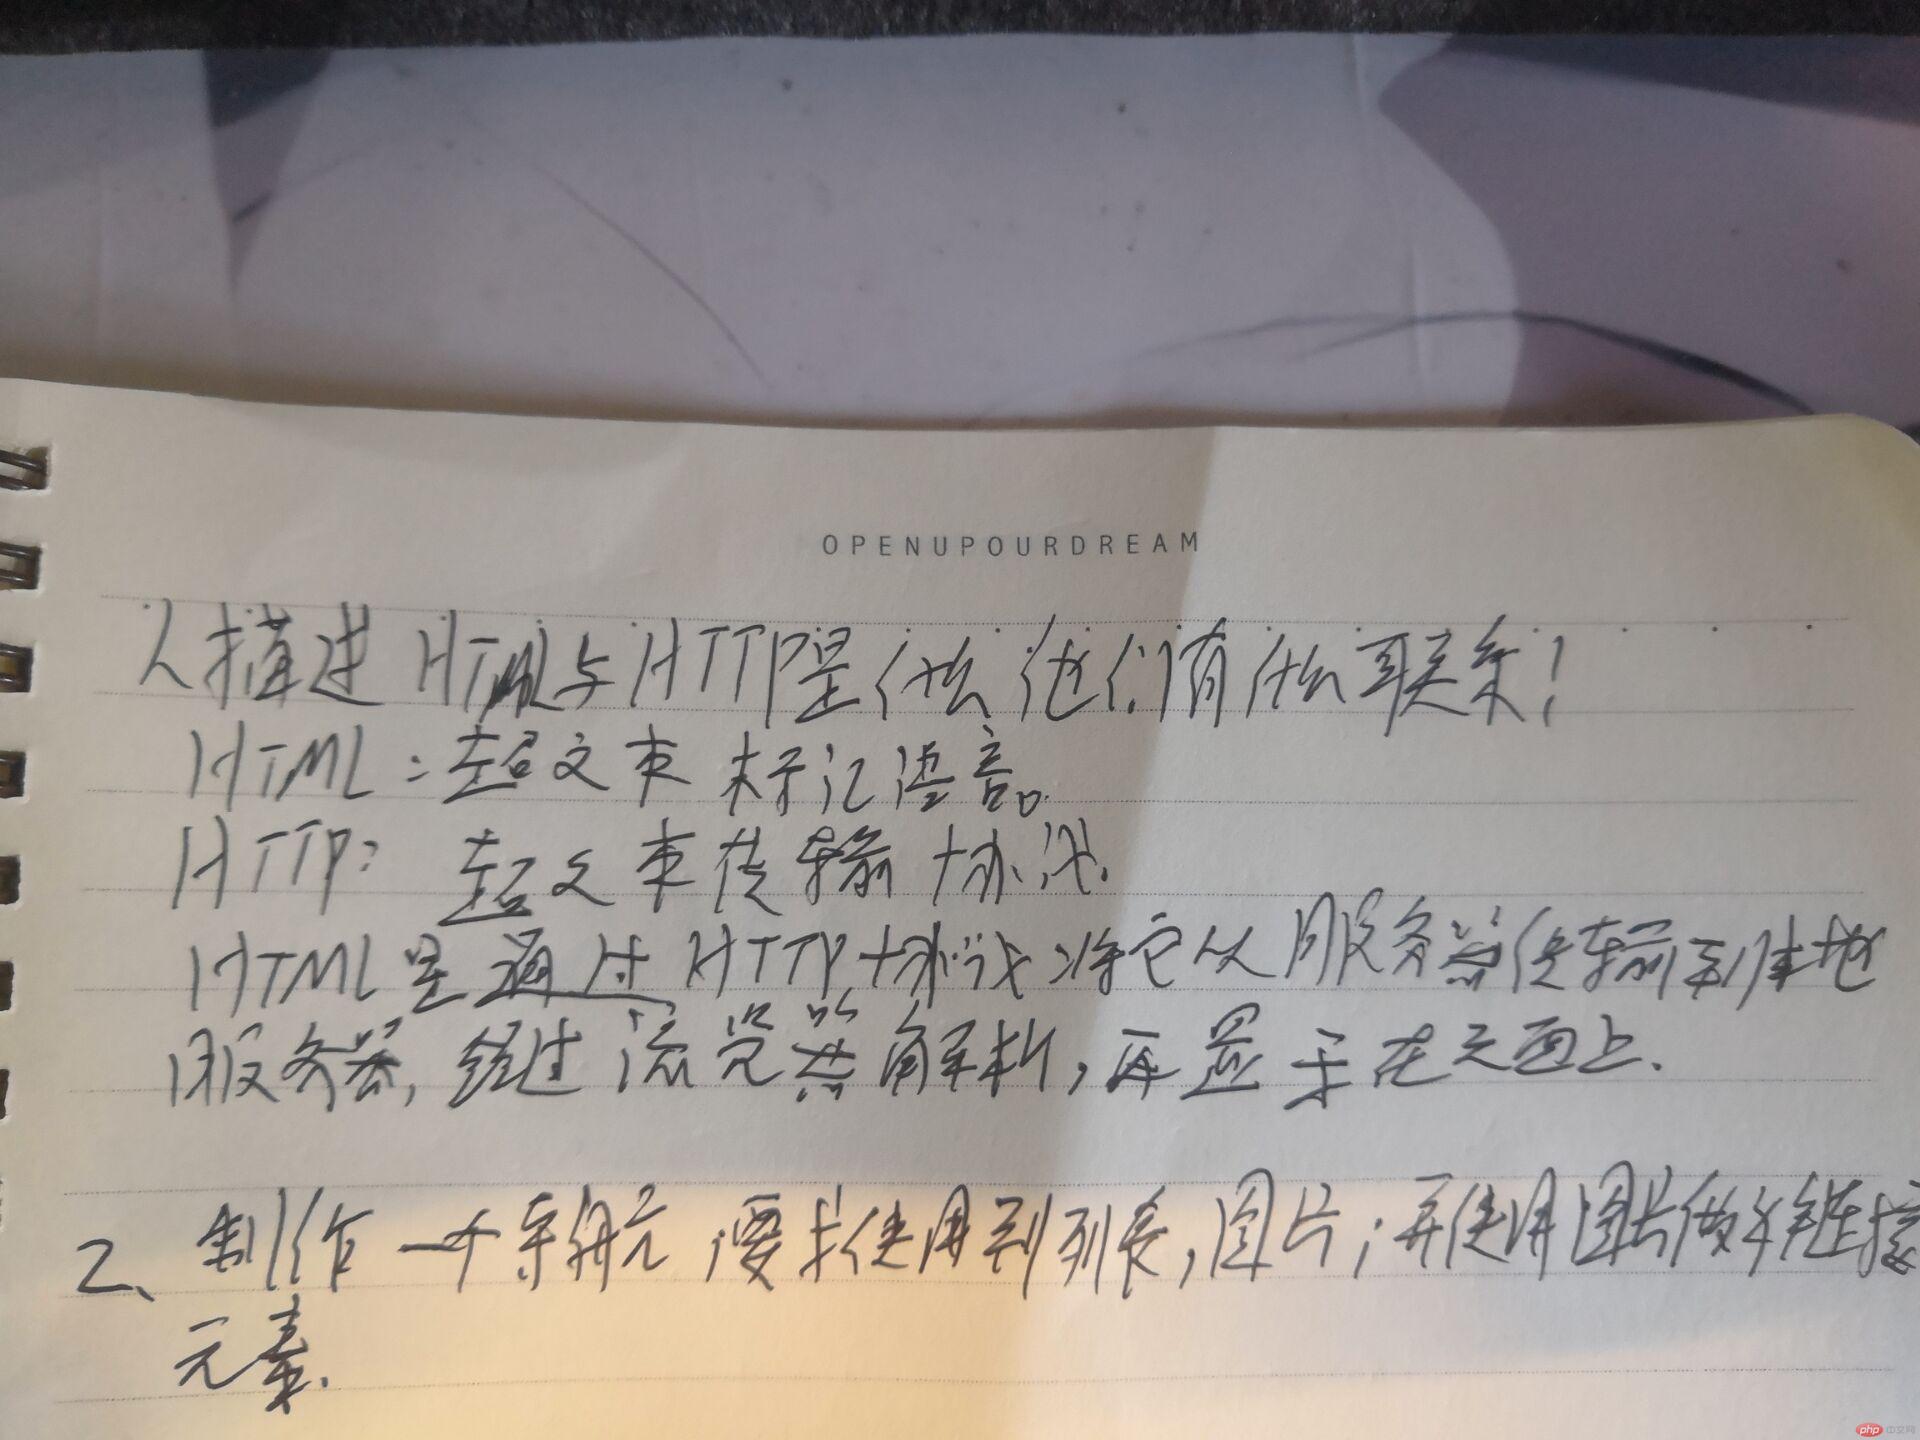 OPENUPOURDREAM
1、描述HTML与HTTP是什么他们有什么联系!
HTML:超文本标记语言。
HTTP:超文本传输协议.
HTML是通过HTTP协议将它从服务器传输到本地
服务器,经过浏览器解析,再显示在页面上.
2、制作一个导航,要求使用到列表,图片;并使用图片做为链接
元素.
php中文网